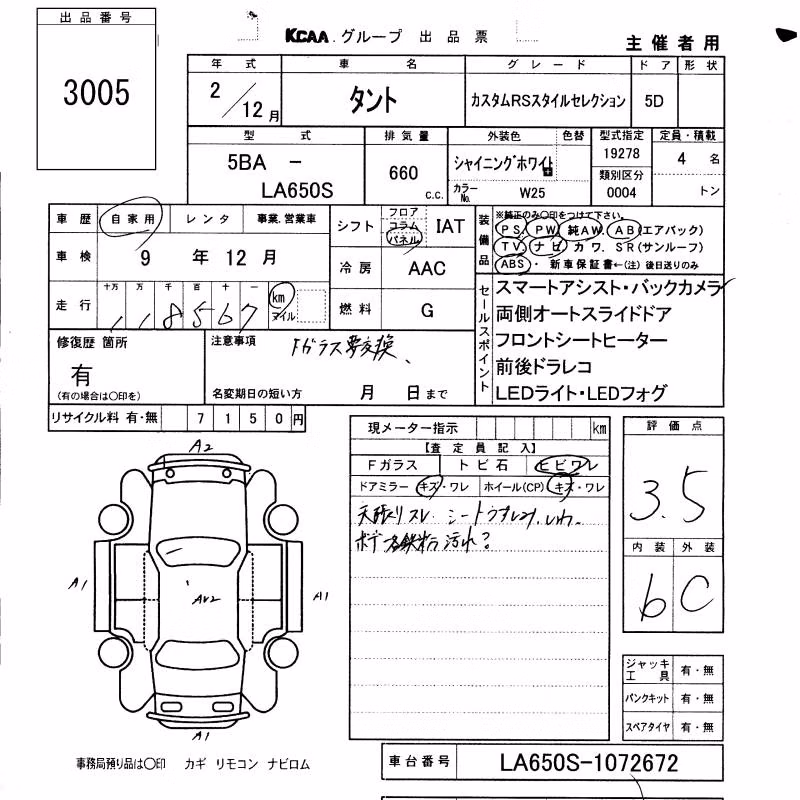 出品番号
3005
KCAA.グループ 出品票
主催者用
年式 車名 グレード ドア 形状
2/12月 タント カスタムRSスタイルセレクション 5D
型式 排気量 外装色 色替 型式指定 定員・積載
5BA - LA650S
660 c.c.
シャイニングホワイト
カラーNo. W25
19278
類別区分
0004
4 名
トン
車歴 自家用 レンタ 事業.営業車
車検 9 年 12 月
走行 十万 万 千 百 十 一
118567 km マイル
シフト フロア コラム パネル IAT
冷房 AAC
燃料 G
装備品
※純正のみ〇印をつけて下さい。
PS. PW. 純AW. AB(エアバック)
TV. ナビ. カワ. SR(サンルーフ)
ABS・ 新車保証書←(注) 後日送りのみ
セールスポイント
スマートアシスト・バックカメラ
両側オートスライドドア
フロントシートヒーター
前後ドラレコ
LEDライト・LEDフォグ
修復歴 箇所
有
(有の場合は〇印を)
注意事項
Fガラス要交換、
名変期日の短い方 月 日まで
リサイクル料 有・無 7150円
現メーター指示 km
【査定員記入】
Fガラス トビ石 ヒビワレ
ドアミラー キズ・ワレ ホイール(CP) キズ・ワレ
天張りスレ シートうすレみ、しわ
ボデー鉄粉汚れ?
評価点
3.5
内装 外装
b C
ジャッキ工具 有・無
パンクキット 有・無
スペアタイヤ 有・無
A2
A1
AW2
A1
A1
事務局預り品は〇印 カギ リモコン ナビロム
車台番号 LA650S-1072672